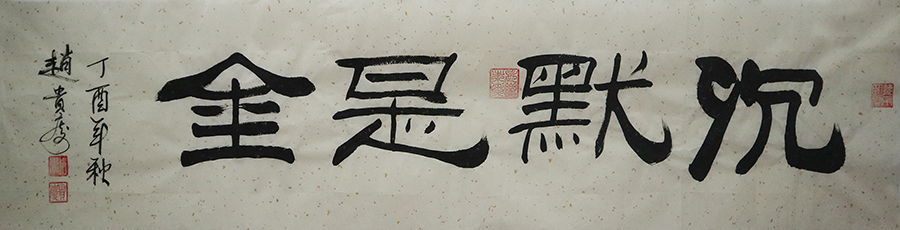 沉默是金
丁酉年秋
趙貴